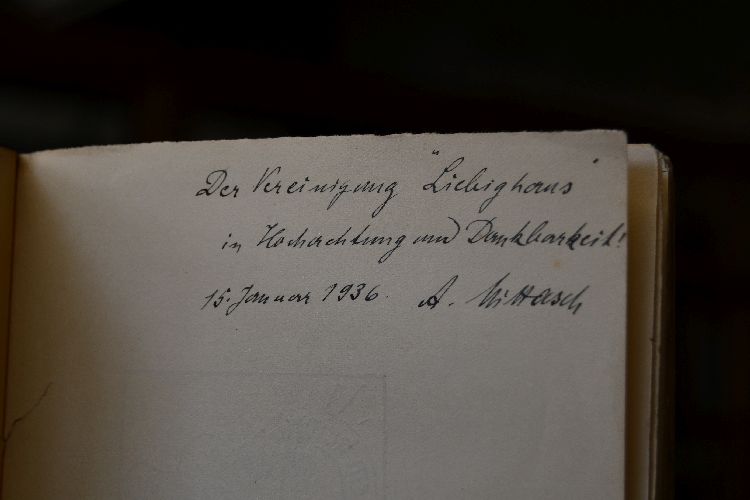 Der Vereinigung "Liebighaus"
in Hochachtung und Dankbarkeit!
15. Januar 1936. A. Mittasch